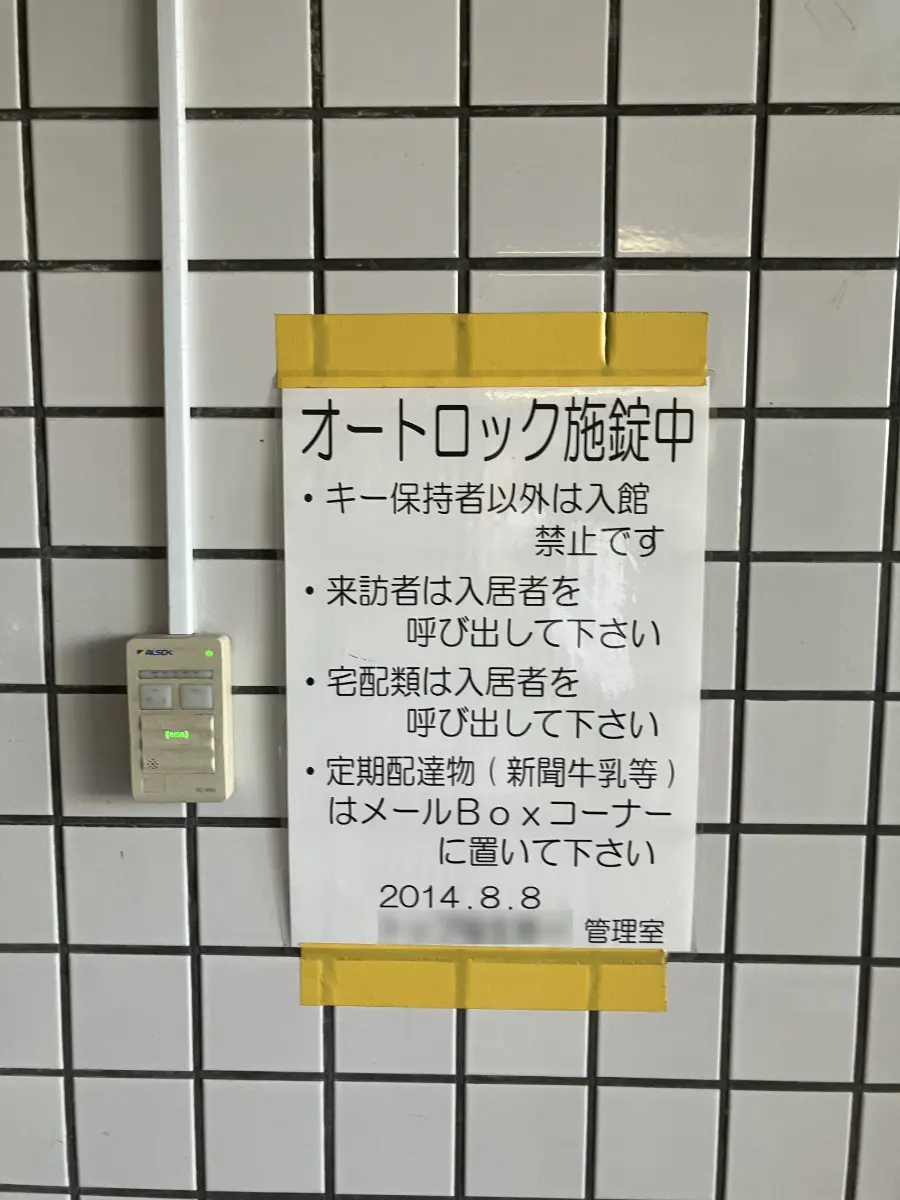 オートロック施錠中
・キー保持者以外は入館
禁止です
・来訪者は入居者を
呼び出して下さい
・宅配類は入居者を
呼び出して下さい
・定期配達物(新聞牛乳等)
はメールBoxコーナー
に置いて下さい
2014.8.8
管理室
ALSOK